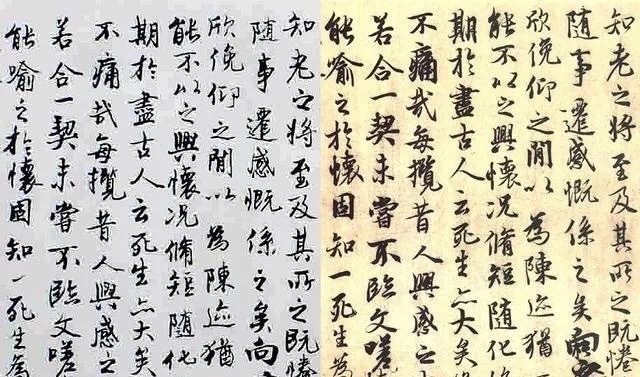 知老之將至及其所之既惓
随事遷感慨係之矣向
欣俛仰之閒以為陳迹猶
能不以之興懷况脩短随化
期於盡古人云死生亦大矣
不痛哉每攬昔人興感之
若合一契未嘗不臨文嗟
能喻之於懷固知一死生為
知老之將至及其所之既惓
随事遷感慨係之矣向
欣俛仰之閒以為陳迹猶
能不以之興懷况脩短随化
期於盡古人云死生亦大矣
不痛哉每攬昔人興感之
若合一契未嘗不臨文嗟
能喻之於懷固知一死生為